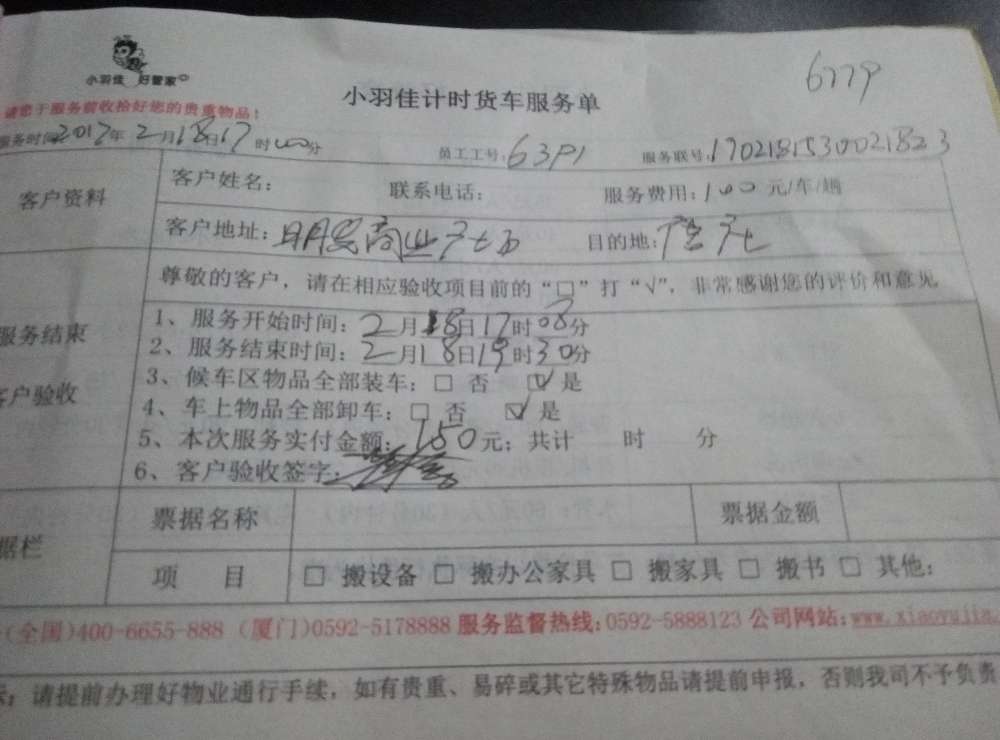 小羽佳 好管家
6779
小羽佳计时货车服务单
请您于服务前收拾好您的贵重物品！
服务时间2017年2月18日17时00分 员工工号:6391 服务联号:1702181530021823
客户资料 客户姓名： 联系电话： 服务费用：100元/车/趟
客户地址：明发商业广场 目的地：
尊敬的客户，请在相应验收项目前的“□”打“√”，非常感谢您的评价和意见
服务结束
客户验收
1、服务开始时间：2月18日17时08分
2、服务结束时间：2月18日19时30分
3、候车区物品全部装车：□ 否 ☑ 是
4、车上物品全部卸车：□ 否 ☑ 是
5、本次服务实付金额：150元；共计 时 分
6、客户验收签字：
据栏 票据名称 票据金额
项 目 □ 搬设备 □ 搬办公家具 □ 搬家具 □ 搬书 □ 其他：
(全国)400-6655-888 (厦门)0592-5178888 服务监督热线:0592-5888123 公司网站:www.xiaoyujia.
请提前办理好物业通行手续，如有贵重、易碎或其它特殊物品请提前申报，否则我司不予负责